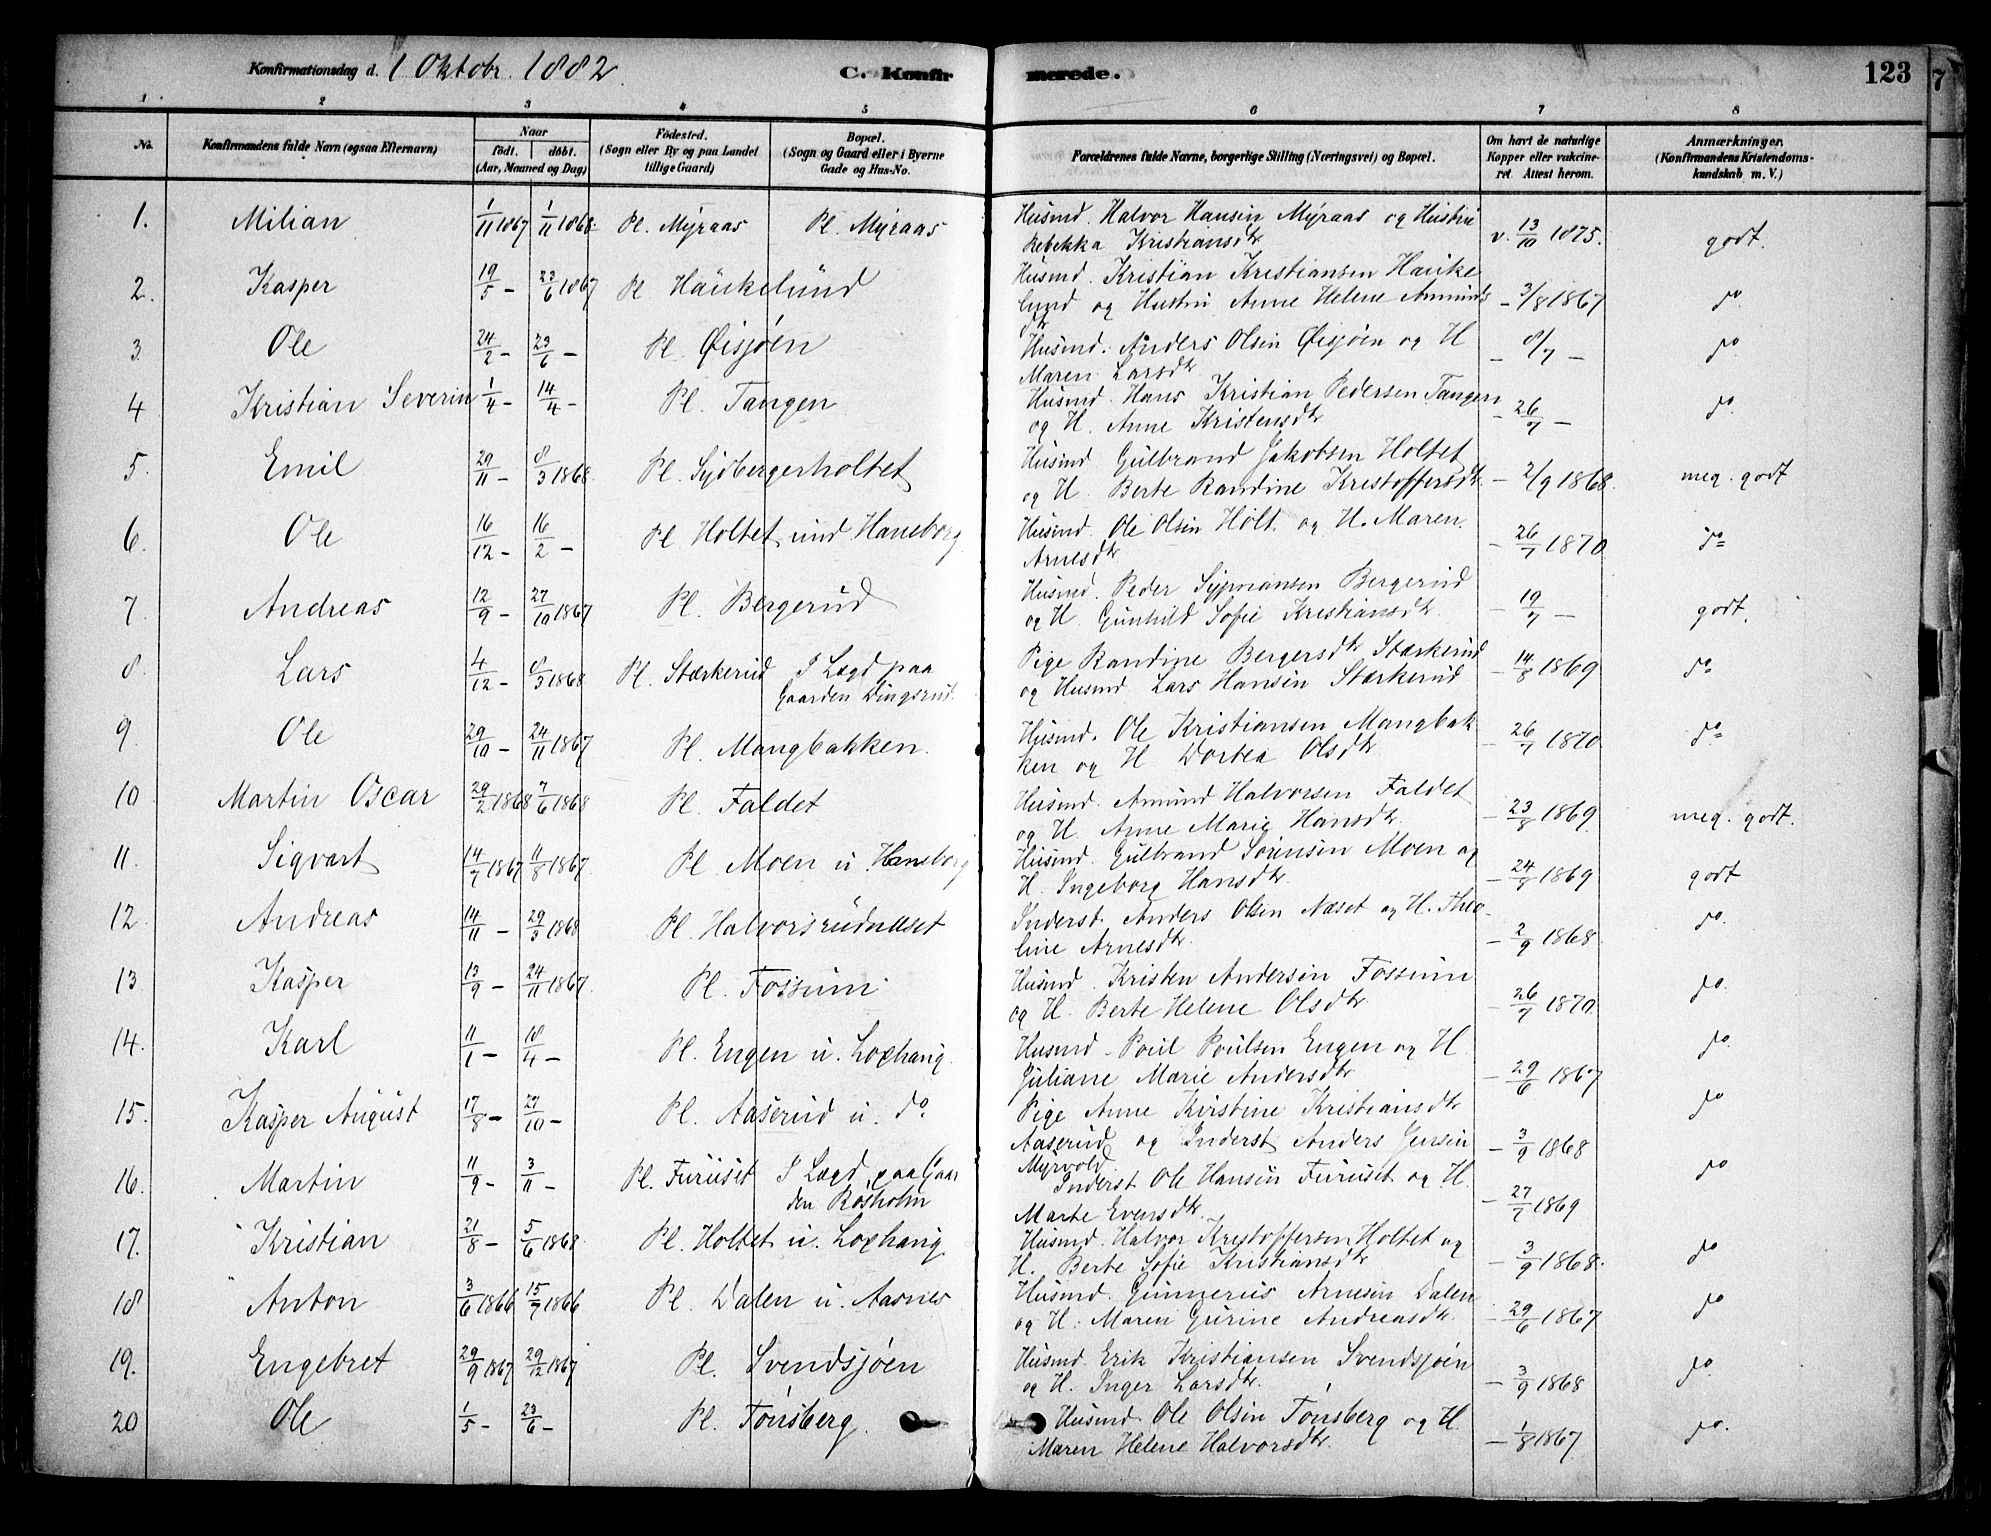 Konfirmationsdag d. 1 Oktobr. 1882
C. Konfirmerede.
123
1 2 3 4 5 6 7 8
No.
Konfirmandens fulde Navn (ogsaa Efternavn)
Naar
födt. döbt.
(Aar, Maaned og Dag)
Födested.
(Sogn eller By og paa Landet
tillige Gaard)
Bopæl.
(Sogn og Gaard eller i Byerne
Gade og Hus-No.
Forældrenes fulde Navne, borgerlige Stilling (Næringsvei) og Bopæl.
Om havt de naturlige
Kopper eller vakcine-
ret. Attest herom.
Anmærkninger.
(Konfirmandens Kristendoms-
kundskab m. V.)
1. Milian 1/11 1867 1/11 1868. Pl. Myraas Pl. Myraas
Husmd. Halvor Hansen Myraas og Hustru
Rebekka Kristiansdtr. v. 13/10 1875. godt.
2. Kasper 19/5 - 23/6 1867 Pl. Haukelund
Husmd. Kristian Kristiansen Hauke
lund og Hustru Anne Helene Amunds
dtr - 3/8 1867 do
3. Ole 24/2 - 23/6 - Pl. Øisjøen
Husmd. Anders Olsen Øisjøen og H
Maren Larsdtr - 8/7 - do
4 Kristian Severin 1/4 - 14/4 - Pl. Tangen
Husmd. Hans Kristian Pedersen Tangen
og H. Anne Kristensdtr - 26/7 - do
5. Emil 29/11 - 8/3 1868. Pl. Sydbergerholtet
Husmd Gulbrand Jakobsen Holtet
og H. Berte Randine Kristoffersdtr. - 2/9 1868. meg. godt
6. Ole 16/12 - 16/2 - Pl. Holtet und Haneborg
Husmd. Ole Olsen Holt. og H. Maren
Arnesdtr - 26/7 1870 do
7 Andreas 12/9 - 27/10 1867 Pl. Bergerud
Husmd. Peder Bergerud
og H. Gunhild Sofie Kristiansdtr. - 19/7 - godt.
8. Lars 4/12 - 8/3 1868 Pl. Stærkerud I Lægd paa
Gaarden Dingsrud.
Pige Randine Bergersdtr Stærkerud
og Husmd Lars Hansen Stærkerud - 14/8 1869 do
9. Ole 29/10 - 24/11 1867 Pl. Mangbakken.
Husmd. Ole Kristiansen Mangbak
ken og H Dortea Olsdtr - 26/7 1870 do
10 Martin Oscar 29/2 1868 7/6 1868 Pl. Faldet
Husmd. Amund Halvorsen Faldet
og H. Anne Marie Hansdtr. - 23/8 1869 meg. godt.
11. Sigvart 14/7 1867 11/8 1867 Pl. Moen u. Haneborg
Husmd. Gulbrand Sørensen Moen og
H. Ingeborg Hansdtr. - 24/8 1869 godt
12. Andreas 14/11 - 29/3 1868 Pl. Halvorsrudnæset
Inderst. Anders Olsen Næset og H. Theo-
line Arnesdtr. - 2/9 1868 do.
13. Kasper 13/9 - 24/11 1867. Pl. Fossum.
Husmd. Kristen Andersen Fossum
og H. Berte Helene Olsdtr. - 26/7 1870 do.
14. Karl 11/1 - 18/4 - Pl. Engen u. Loxhaug
Husmd. Poul Poulsen Engen og H
Juliane Marie Andersdtr - 29/6 1867 do.
15. Kasper August 17/8 - 27/10 - Pl. Aaserud u. do.
Pige Anne Kirstine Kristiansdtr
Aaserud og Inderst Anders Jensen
Myrvold. - 3/9 1868 do
16. Martin 11/9 - 3/11 - Pl. Furuset I Lægd paa Gaar
den Rosholm
Inderst Ole Hansen Furuset og H.
Marte Evensdtr. - 27/7 1869 do
17. Kristian 21/8 - 5/6 1868 Pl. Holtet u. Loxhaug
Husmd. Halvor Kristoffersen Holtet og
H. Berte Sofie Kristiansdtr - 3/9 1868. do
18 Anton 3/6 1866 15/7 1866 Pl. Dalen u. Aasnes
Husmd. Gunnerius Arnesen Dalen
og H. Maren Gurine Andreasdtr. - 29/6 1867 do
19. Engebret 29/9 1867 29/12 1867 Pl. Svendsjøen
Husmd. Erik Kristiansen Svendsjøen
og H. Inger Larsdtr. - 3/9 1868 do.
20 Ole 1/5 - 23/6 - Pl. Tønsberg.
Husmd. Ole Olsen Tønsberg og H.
Maren Helene Halvorsdtr. - 1/8 1867 do.
7